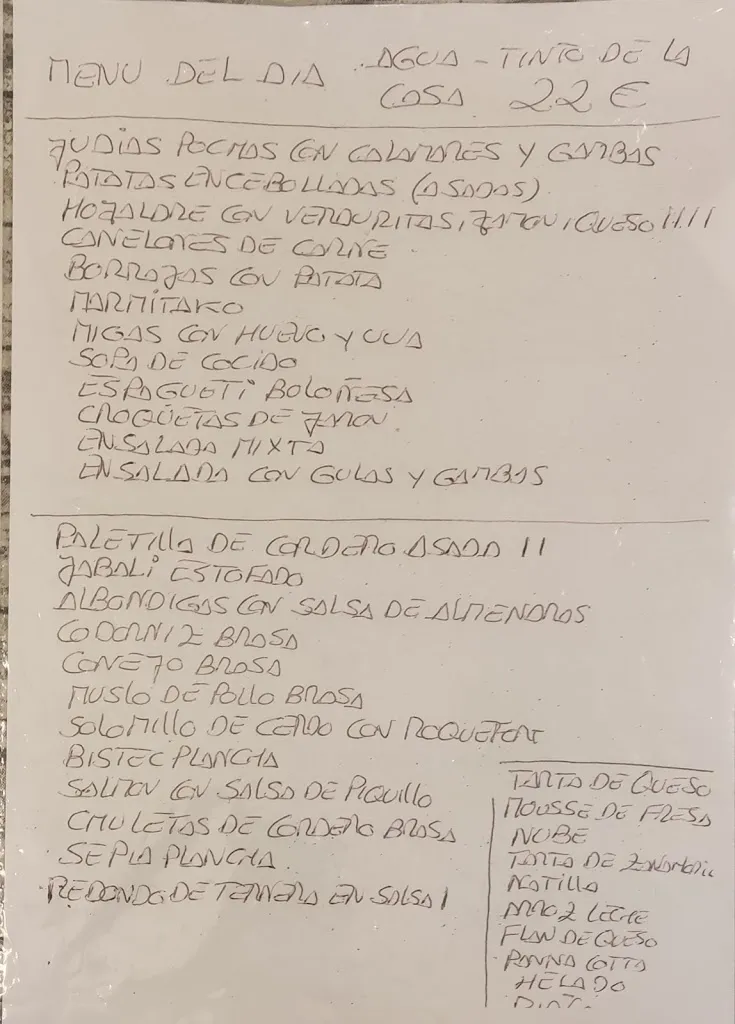 MENU DEL DIA AGUA - TINTO DE LA
CASA 22 €
JUDIAS POCHAS CON CALAMARES Y GAMBAS
PATATAS ENCEBOLLADAS (ASADAS)
HOJALDRE CON VERDURITAS, JAMON, QUESO !!!!
CANELONES DE CARNE
BORRAJAS CON PATATA
MARMITAKO
MIGAS CON HUEVO Y UVA
SOPA DE COCIDO
ESPAGUETI BOLOÑESA
CROQUETAS DE JAMON
ENSALADA MIXTA
ENSALADA CON GULAS Y GAMBAS
PALETILLA DE CORDERO ASADA !!
JABALI ESTOFADO
ALBONDIGAS CON SALSA DE ALMENDRAS
CODORNIZ BRASA
CONEJO BRASA
MUSLO DE POLLO BRASA
SOLOMILLO DE CERDO CON ROQUEFORT
BISTEC PLANCHA
SALMON CON SALSA DE PIQUILLO
CHULETAS DE CORDERO BRASA
SEPIA PLANCHA
REDONDO DE TERNERA EN SALSA !
TARTA DE QUESO
MOUSSE DE FRESA
NUBE
TARTA DE
NATILLA
ARROZ LECHE
FLAN DE QUESO
PANNA COTTA
HELADO